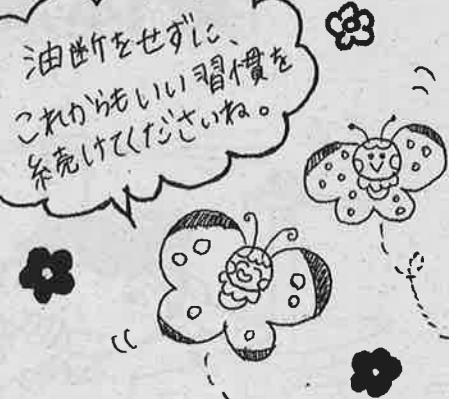 油断をせずに、
これからもいい習慣を
続けてくださいね。